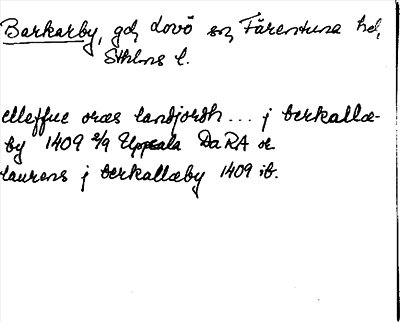 Barkarby, gd, Lovö sn, Färentuna hd,
Sthlms l.
elleffue øræs landjordh... j berkallæ-
by 1409 2/9 Uppsala DaRA or.
laurens j berkallæby 1409 ib.